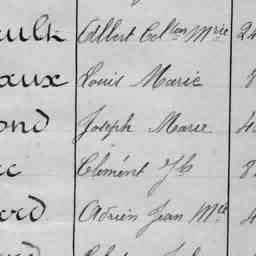 ault Albert Cel^tin M^rie 24
aux Louis Marie 8
ond Joseph Marie 4
ec Clémént J^h 8
ard Adrien Jean M^ie 4